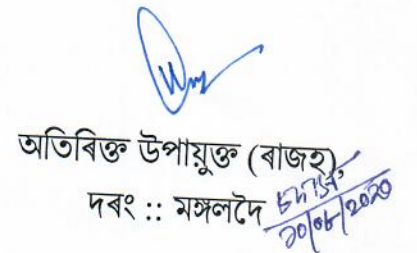 অতিৰিক্ত উপায়ুক্ত (ৰাজহ),
দৰং :: মঙ্গলদৈ
২০/০৮/২০২০